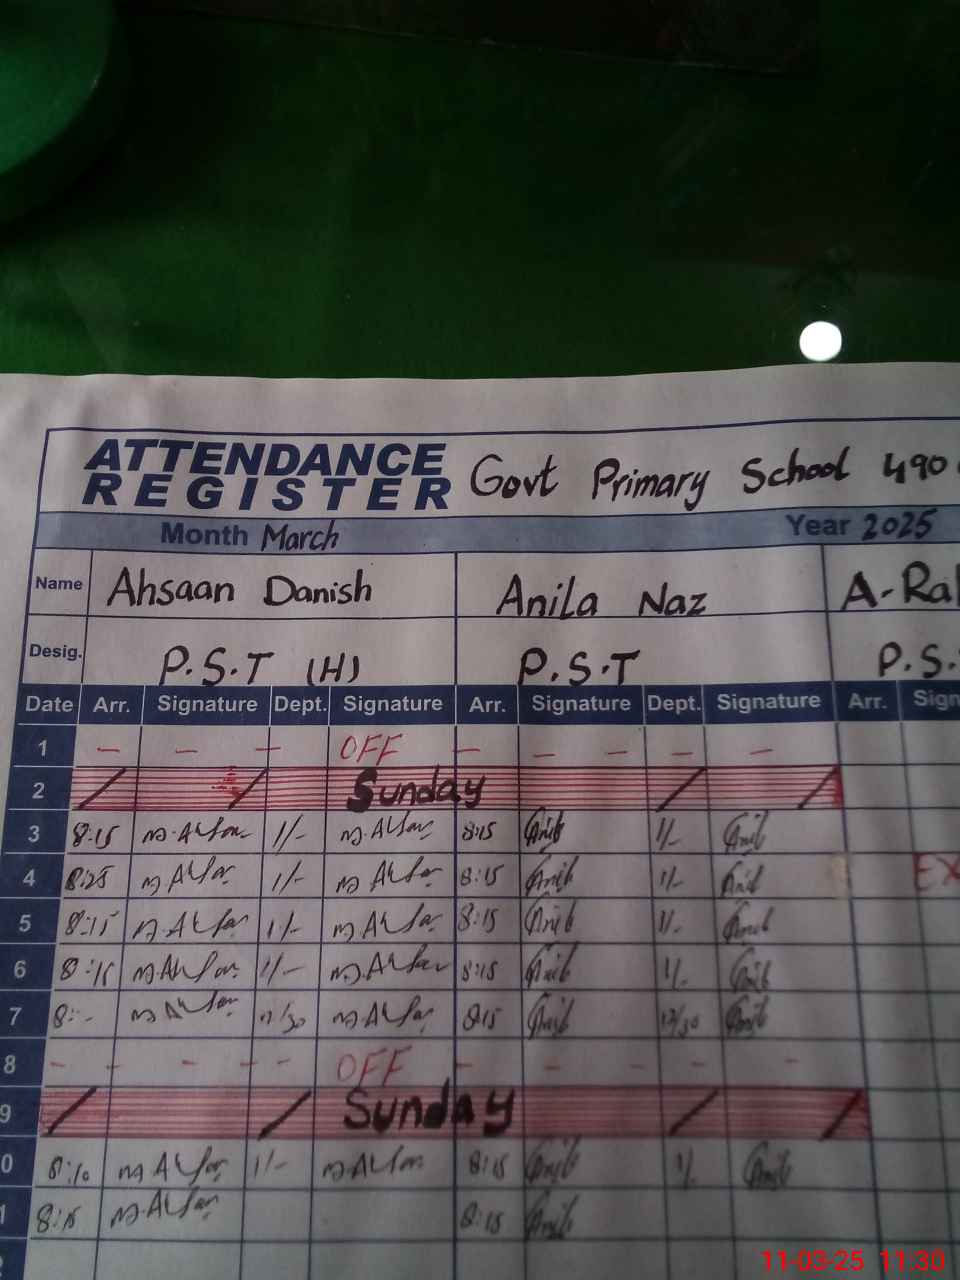 ATTENDANCE
REGISTER Govt Primary School 490
Month March Year 2025
Name Ahsaan Danish Anila Naz A-Ra
Desig. P.S.T (H) P.S.T P.S.
Date Arr. Signature Dept. Signature Arr. Signature Dept. Signature Arr. Sign
1 - - - OFF - - - - -
2 / / Sunday / /
3 8:15 1/- 8:15 Anib 1/- Anib
4 8:25 1/- 8:15 Anib 1/- Anib EX
5 8:15 1/- 8:15 Anib 1/- Anib
6 8:15 1/- 8:15 Anib 1/- Anib
7 8:- 12/30 8:15 Anib 12/30 Anib
8 - - - - - OFF - - - - -
9 / / Sunday / /
0 8:10 1/- 8:15 Anib 1/- Anib
1 8:15 8:15 Anib
11-03-25 11:30